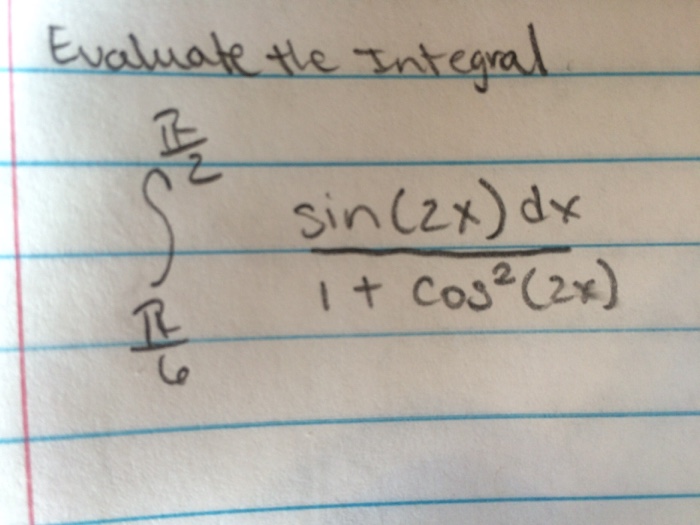 Evaluate the Integral
π/2
∫ sin(2x) dx
π/6 1 + cos²(2x)